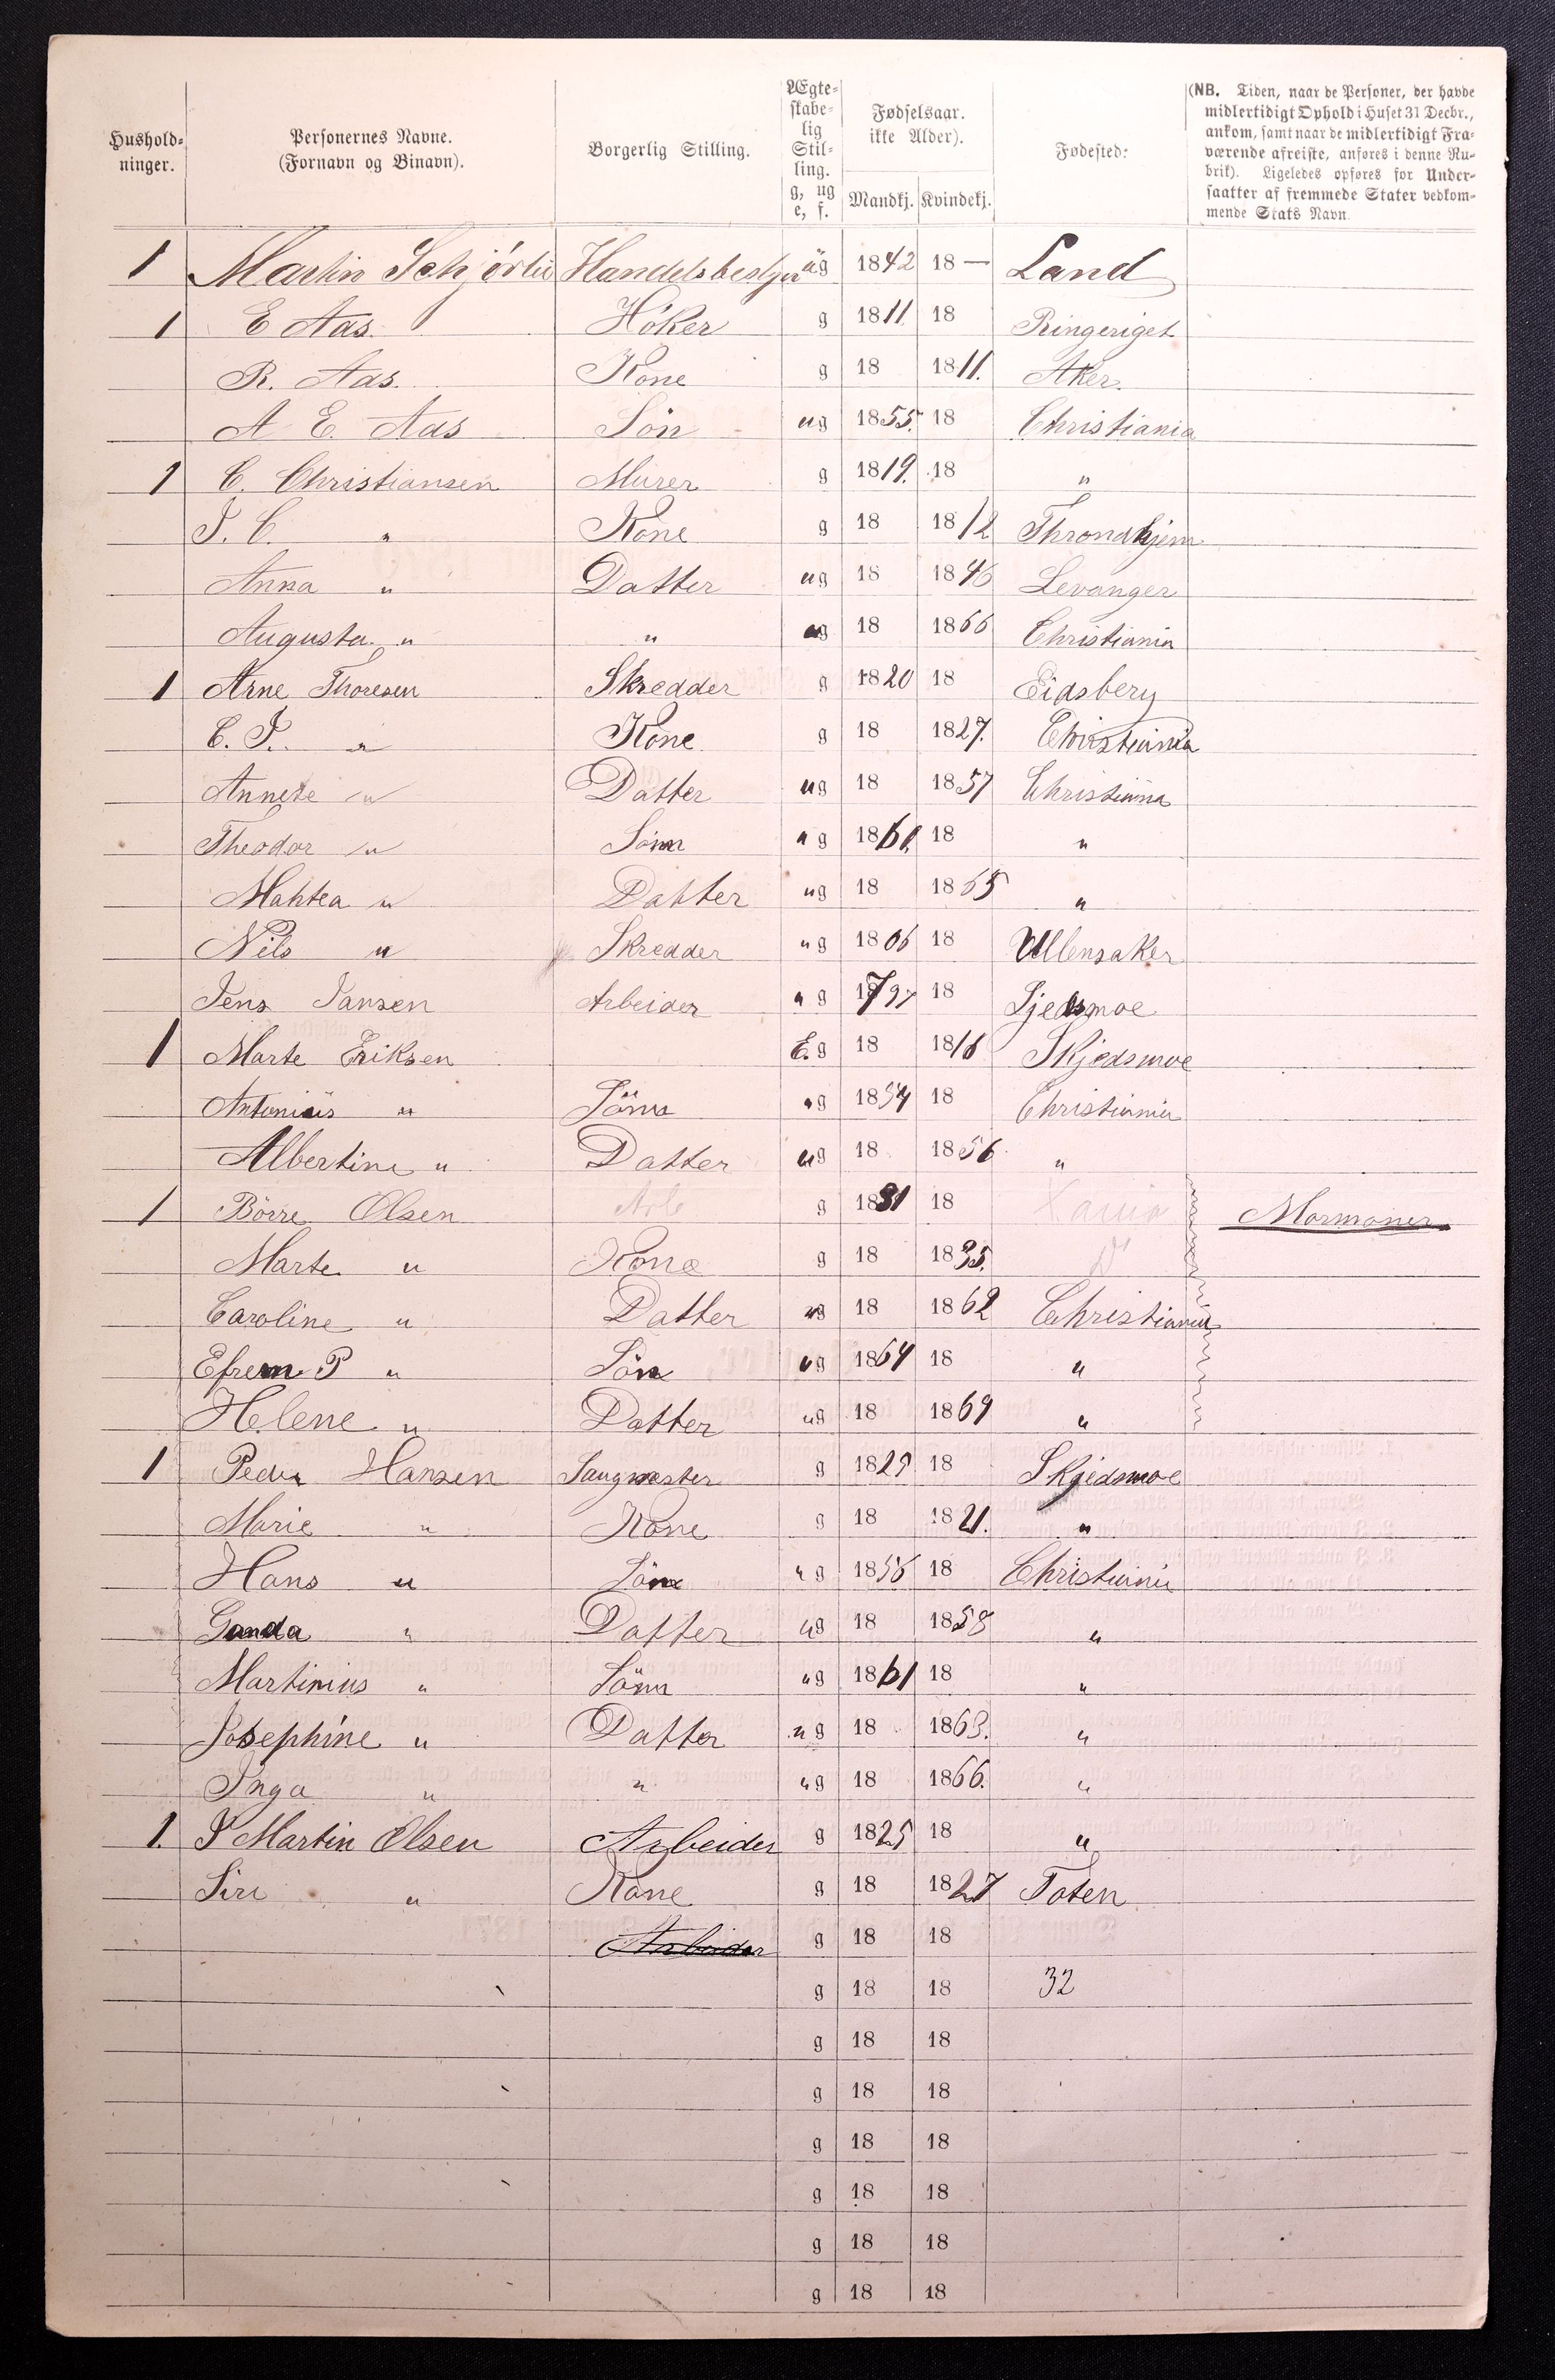 Hushold-ninger. Personernes Navne. (Fornavn og Binavn). Borgerlig Stilling. Ægte-skabe-lig Stil-ling. g, ug e, f. Fødselsaar. ikke Alder). Mandkj. Kvindekj. Fødested: (NB. Tiden, naar de Personer, der havde midlertidigt Ophold i Huset 31 Decbr., ankom, samt naar de midlertidigt Fra-værende afreiste, anføres i denne Ru-brik). Ligeledes opføres for Under-saatter af fremmede Stater vedkom-mende Stats Navn.
1 Martin Handelsbestyr ug 1842 18 — Land
1 E Aas. Höker g 1811 18 Ringeriget
R. Aas. Kone g 18 1811. Aker.
A E. Aas Sön ug 1855. 18 Christiania
1 C. Christiansen Murer g 1819. 18 "
J. C. " Kone g 18 1812 Throndhjem
Anna " Datter ug 18 1846 Levanger
Augusta " " ug 18 1866 Christiania
1 Arne Thoresen Skredder g 1820 18 Eidsberg
C. J. " Kone g 18 1827. Christiania
Annete " Datter ug 18 1857 Christiania
Theodor " Sönn ug 1860. 18 "
Mahtea " Datter ug 18 1865 "
Nils " Skredder ug 1806 18 Ullensaker
Jens Jansen Arbeider ug 1797 18 Sjedsmoe
1 Marte Eriksen E.g 18 1816 Skjedsmoe
Antonius " Sönn ug 1854 18 Christiania
Albertine " Datter ug 18 1856 "
1 Börre Olsen Arb g 1831 18 Xania Mormoner
Marte " Kone g 18 1835. Do
Caroline " Datter ug 18 1862 Christiania
Efrem P " Sön ug 1864 18 "
Helene " Datter ug 18 1869 "
1 Peder Hansen Saugmester g 1829 18 Skjedsmoe
Marie " Kone g 18 1821. "
Hans " Sön ug 1856 18 Christiania
Ganda " Datter ug 18 1858 "
Martinius " Sönn ug 1861 18 "
Josephine " Datter ug 18 1863. "
Inga " " ug 18 1866. "
1. J Martin Olsen Arbeider g 1825 18 "
Siri " Kone g 18 1827 Toten
Arbeider g 18 18
g 18 18 32
g 18 18
g 18 18
g 18 18
g 18 18
g 18 18
g 18 18